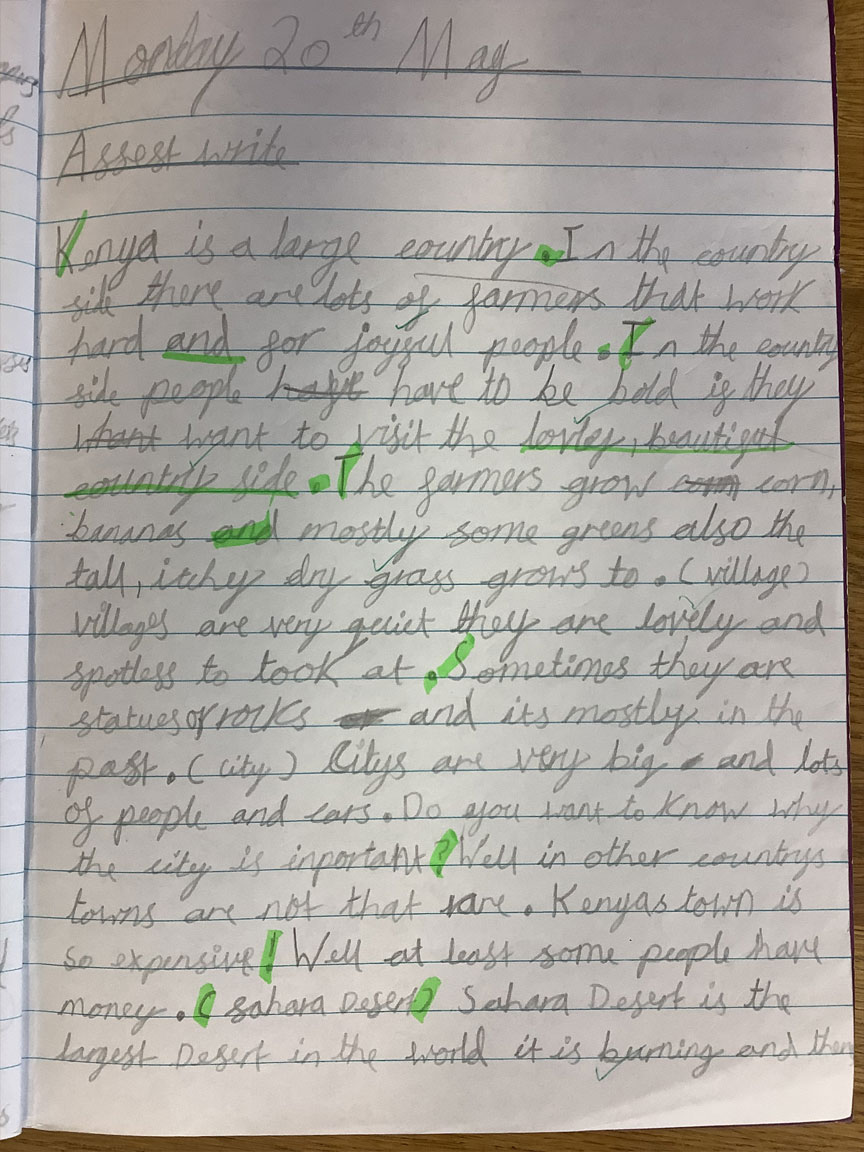 Monday 20th May
Assest write
Kenya is a large country. In the country
side there are lots of farmers that work
hard and for joyful people. In the country
side people have to be bold if they
want to visit the lovley, beautiful
country side. The farmers grow corn,
bananas and mostly some greens also the
tall, itchy dry grass grows to. (village)
villages are very quiet they are lovely and
spotless to look at. Sometimes they are
statues of rocks and its mostly in the
past. (city) Citys are very big and lots
of people and cars. Do you want to know why
the city is inportant? Well in other countrys
towns are not that rare. Kenyas town is
so expensive! Well at least some people have
money. (sahara Desert) Sahara Desert is the
largest Desert in the world it is burning and